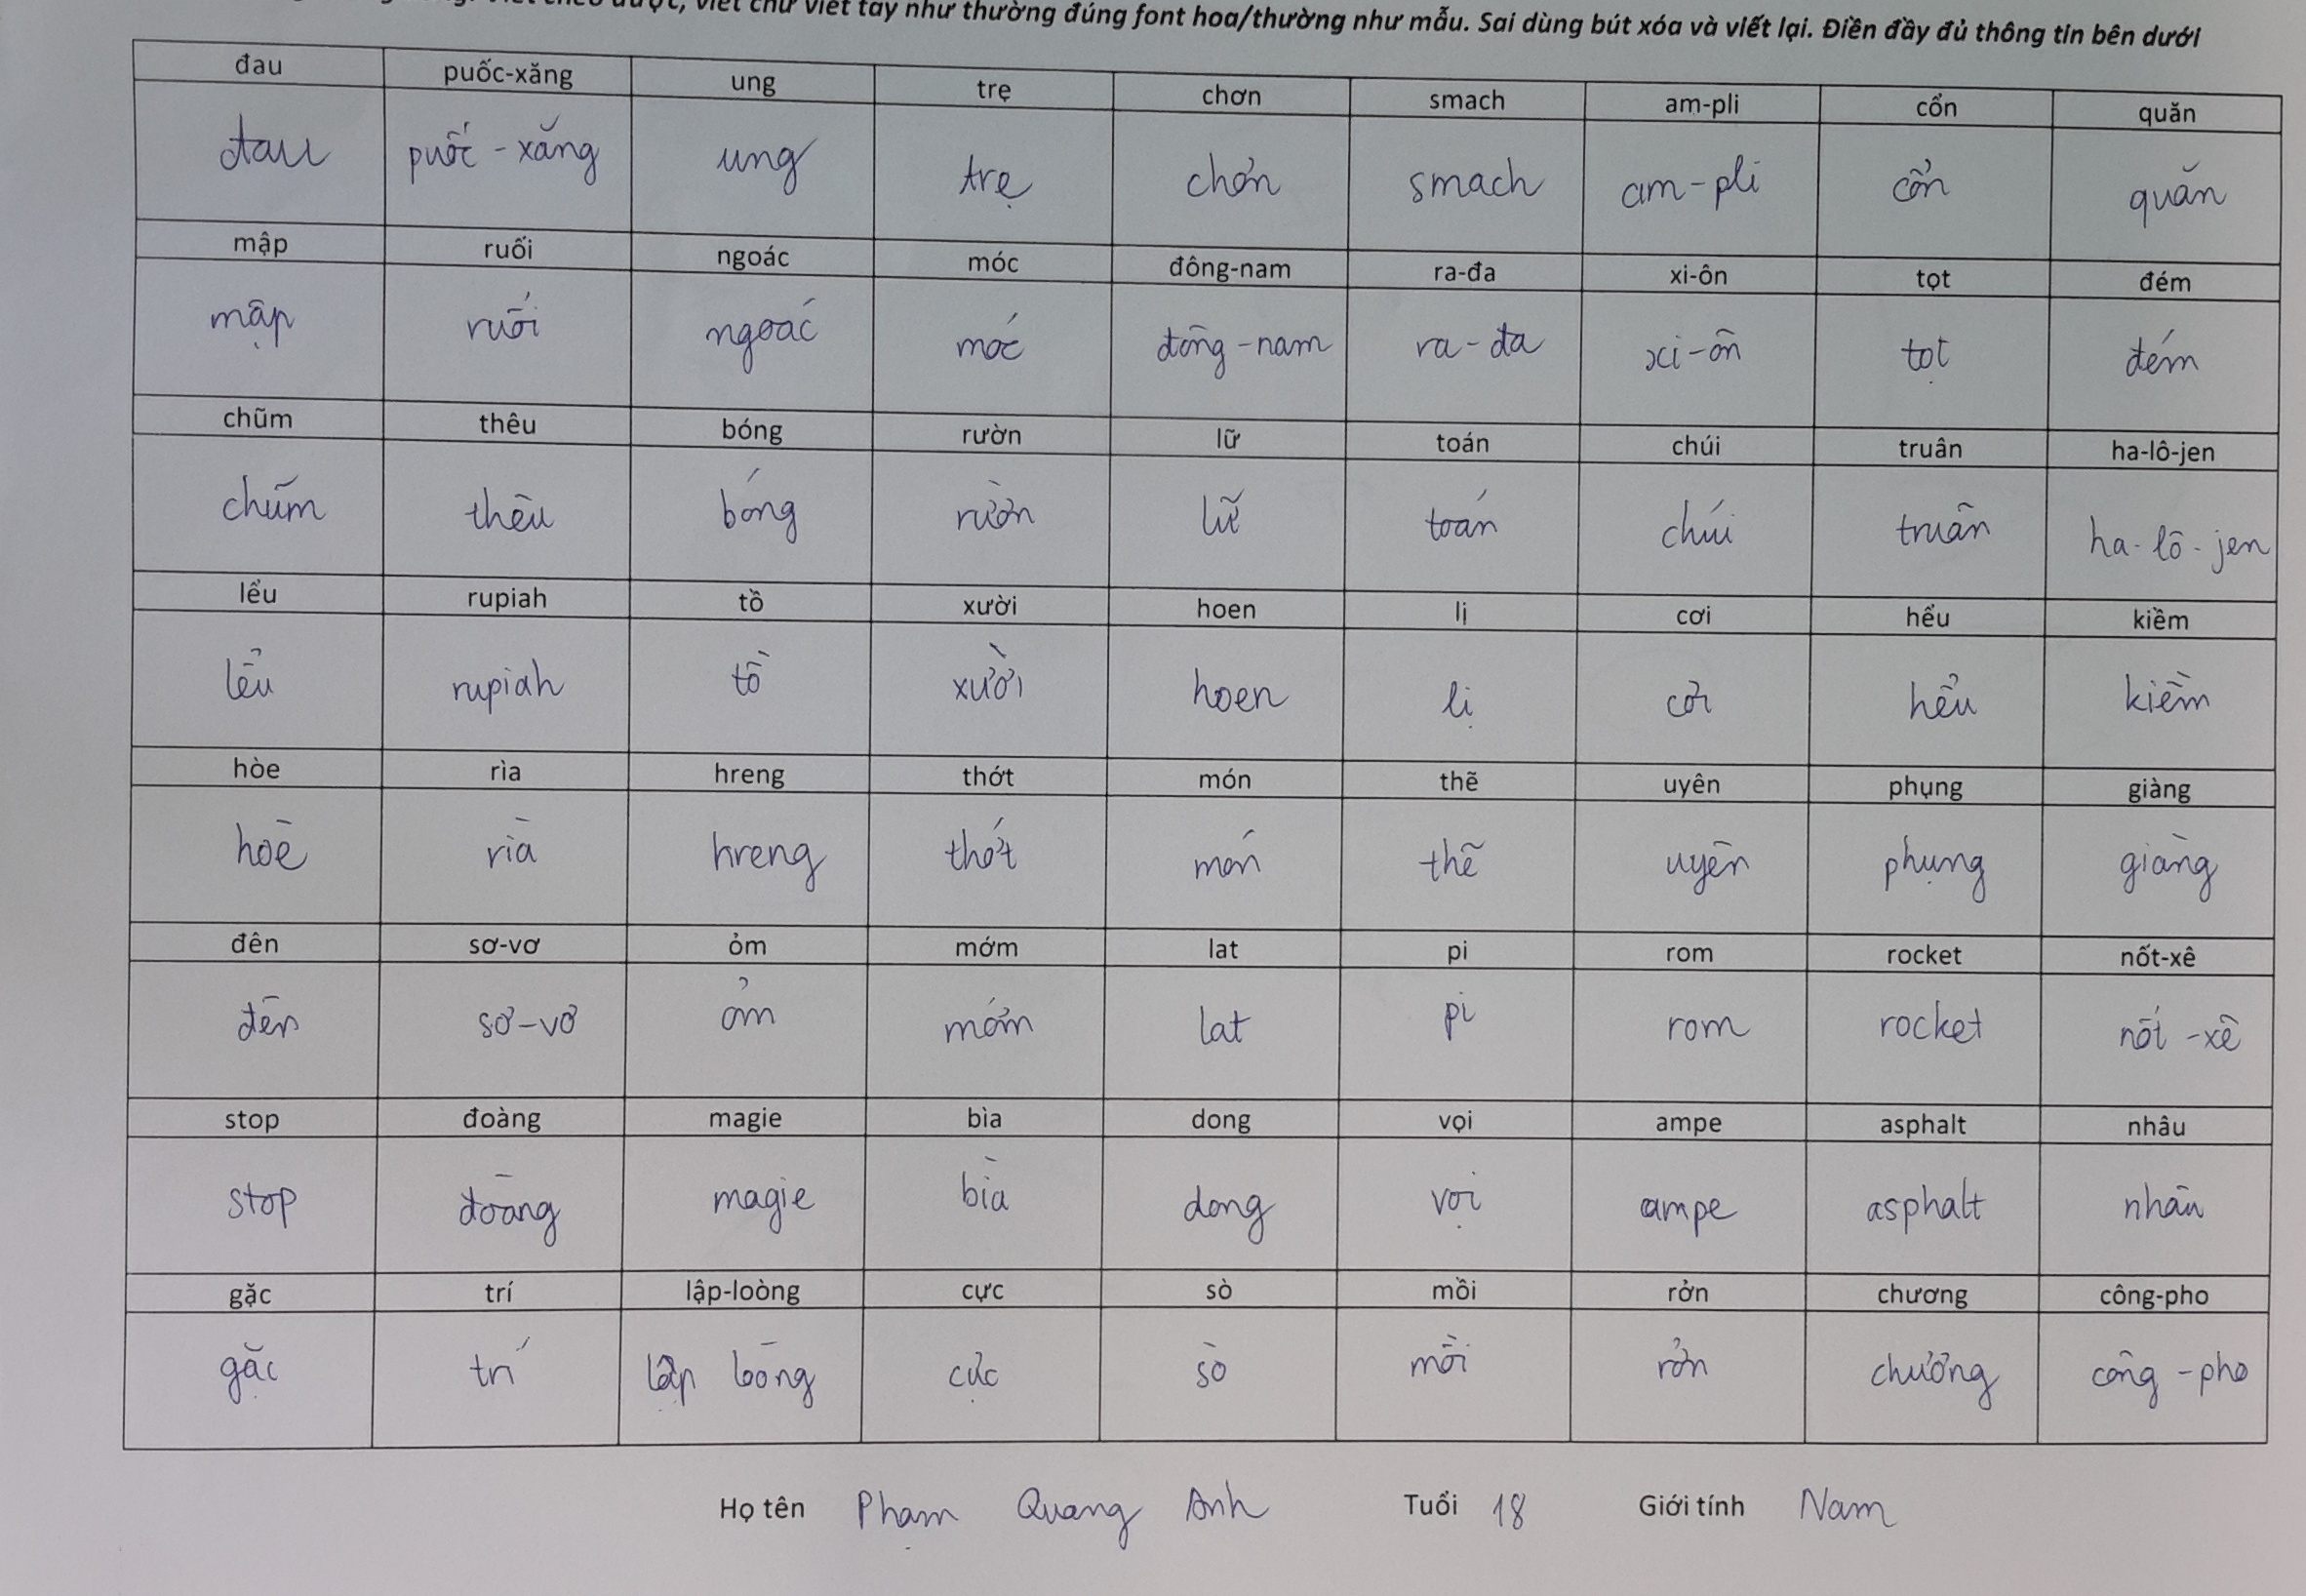 viết theo được, viết chữ viết tay như thường đúng font hoa/thường như mẫu. Sai dùng bút xóa và viết lại. Điền đầy đủ thông tin bên dưới
đau puốc-xăng ung trẹ chơn smach am-pli cổn quăn
đau puốc-xăng ung trẹ chơn smach am-pli cổn quăn
mập ruối ngoác móc đông-nam ra-đa xi-ôn tọt đém
mập ruối ngoác móc đông-nam ra-đa xi-ôn tọt đém
chũm thêu bóng rườn lữ toán chúi truân ha-lô-jen
chũm thêu bóng rườn lữ toán chúi truân ha-lô-jen
lểu rupiah tồ xười hoen lị cơi hểu kiềm
lểu rupiah tồ xười hoen lị cơi hểu kiềm
hòe rìa hreng thớt món thẽ uyên phụng giàng
hoè rìa hreng thớt món thẽ uyên phụng giàng
đên sơ-vơ ỏm mớm lat pi rom rocket nốt-xê
đên sơ-vơ ỏm mớm lat pi rom rocket nốt-xê
stop đoàng magie bìa dong vọi ampe asphalt nhâu
stop đoàng magie bìa dong vọi ampe asphalt nhâu
gặc trí lập-loòng cực sò mồi rởn chương công-pho
gặc trí lập loòng cực sò mồi rởn chương công-pho
Họ tên Phạm Quang Anh Tuổi 18 Giới tính Nam